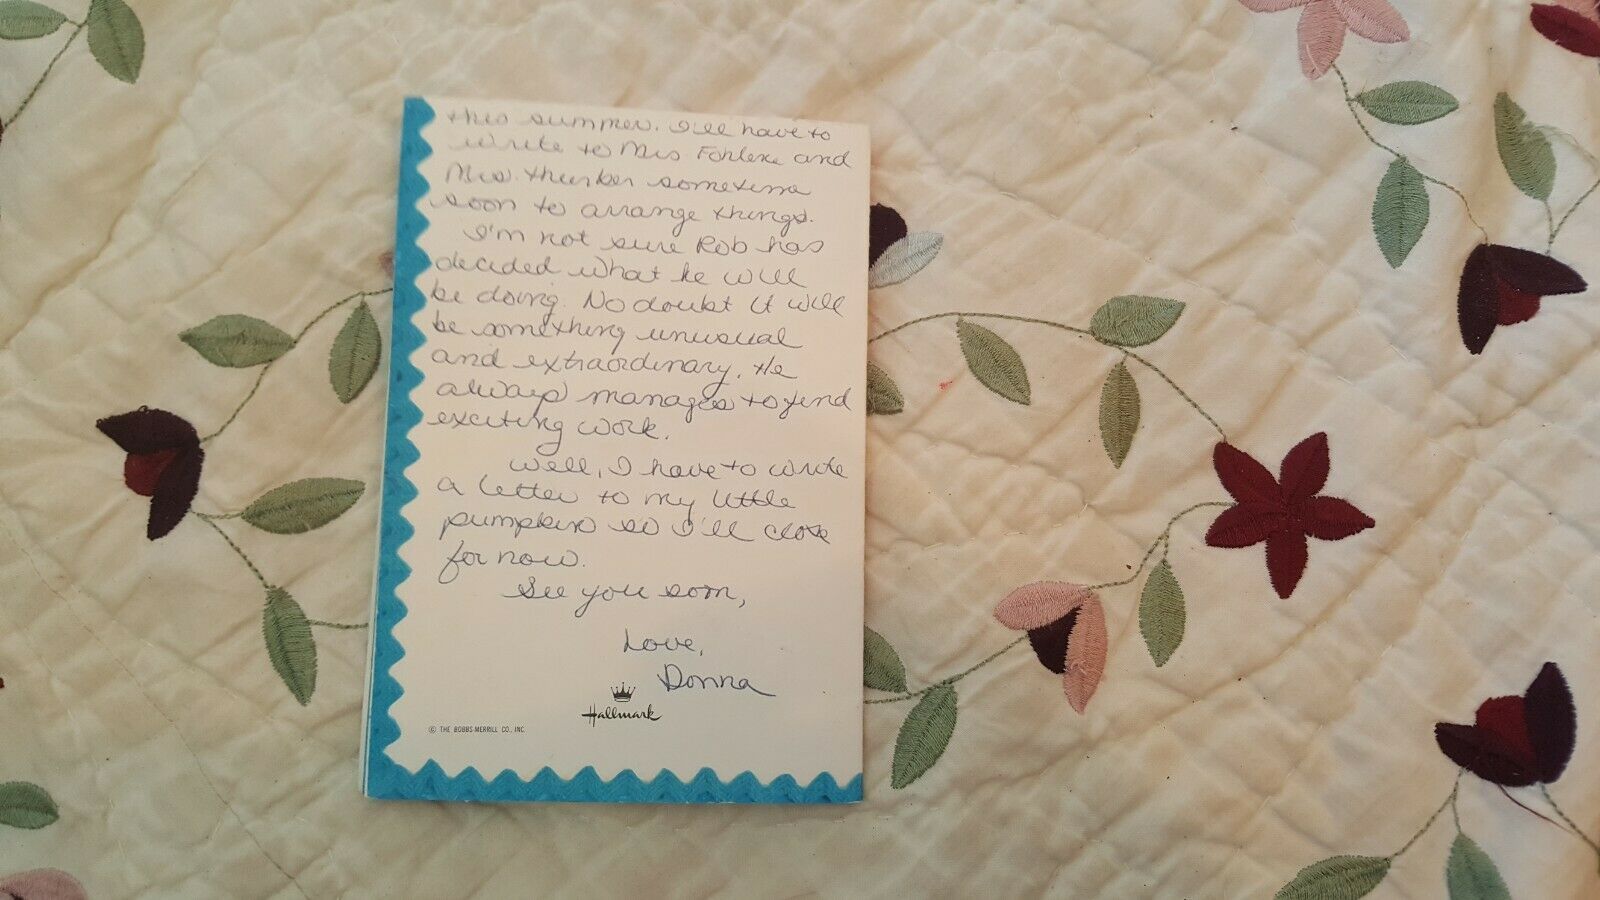 this summer. I'll have to
write to Mrs Fohlene and
Mrs. thurber sometime
soon to arrange things.
I'm not sure Rob has
decided what he will
be doing. No doubt it will
be something unusual
and extraordinary. He
always manages to find
exciting work.
Well, I have to write
a letter to my little
pumpkin so I'll close
for now.
See you soon,
Love,
Donna
Hallmark
© THE BOBBS-MERRILL CO., INC.